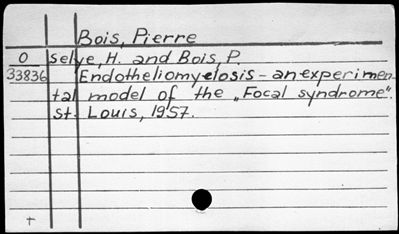 Bois, Pierre
O selye, H. and Bois, P.
33836 Endotheliomyelosis - an experimen
tal model of the „Focal syndrome".
st. Louis, 1957.
+